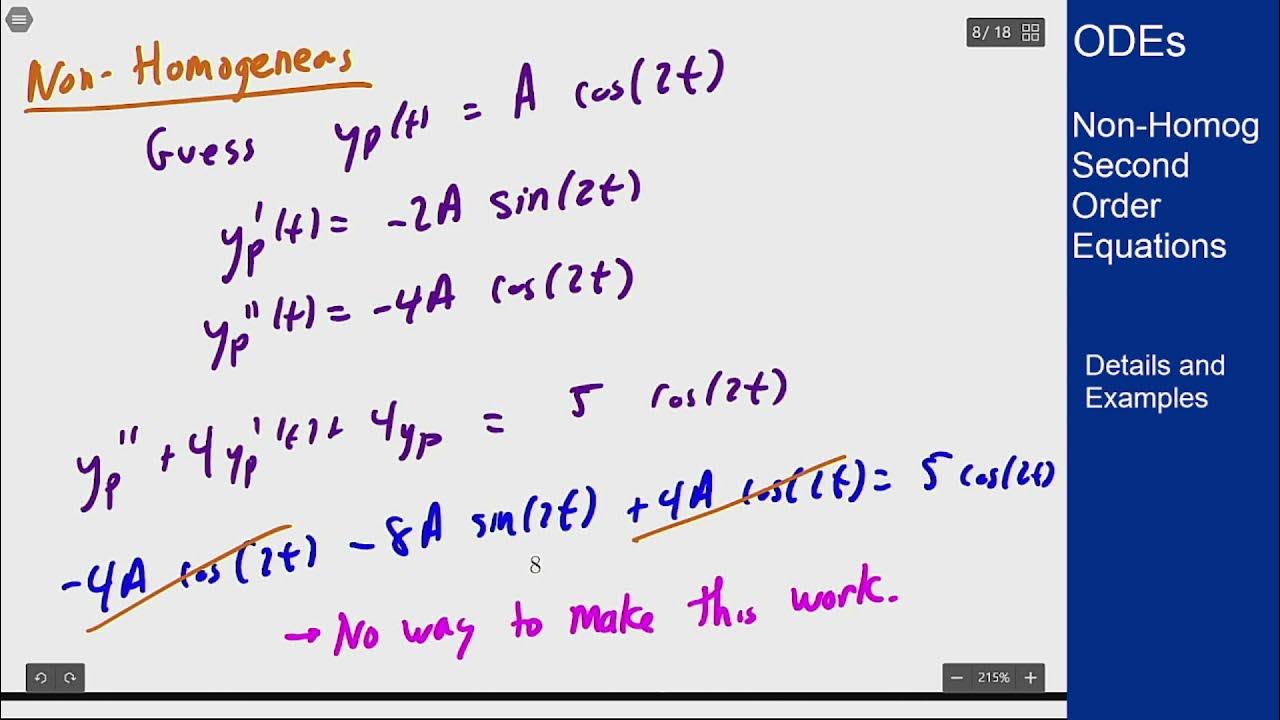 Non-Homogeneas
8 / 18
Guess yp(t) = A cos(2t)
yp'(t) = -2A sin(2t)
yp''(t) = -4A cos(2t)
yp'' + 4yp'(t) + 4yp = 5 cos(2t)
-4A cos(2t) - 8A sin(2t) + 4A cos(2t) = 5 cos(2t)
8
→ No way to make this work.
215%
ODEs
Non-Homog
Second
Order
Equations
Details and
Examples